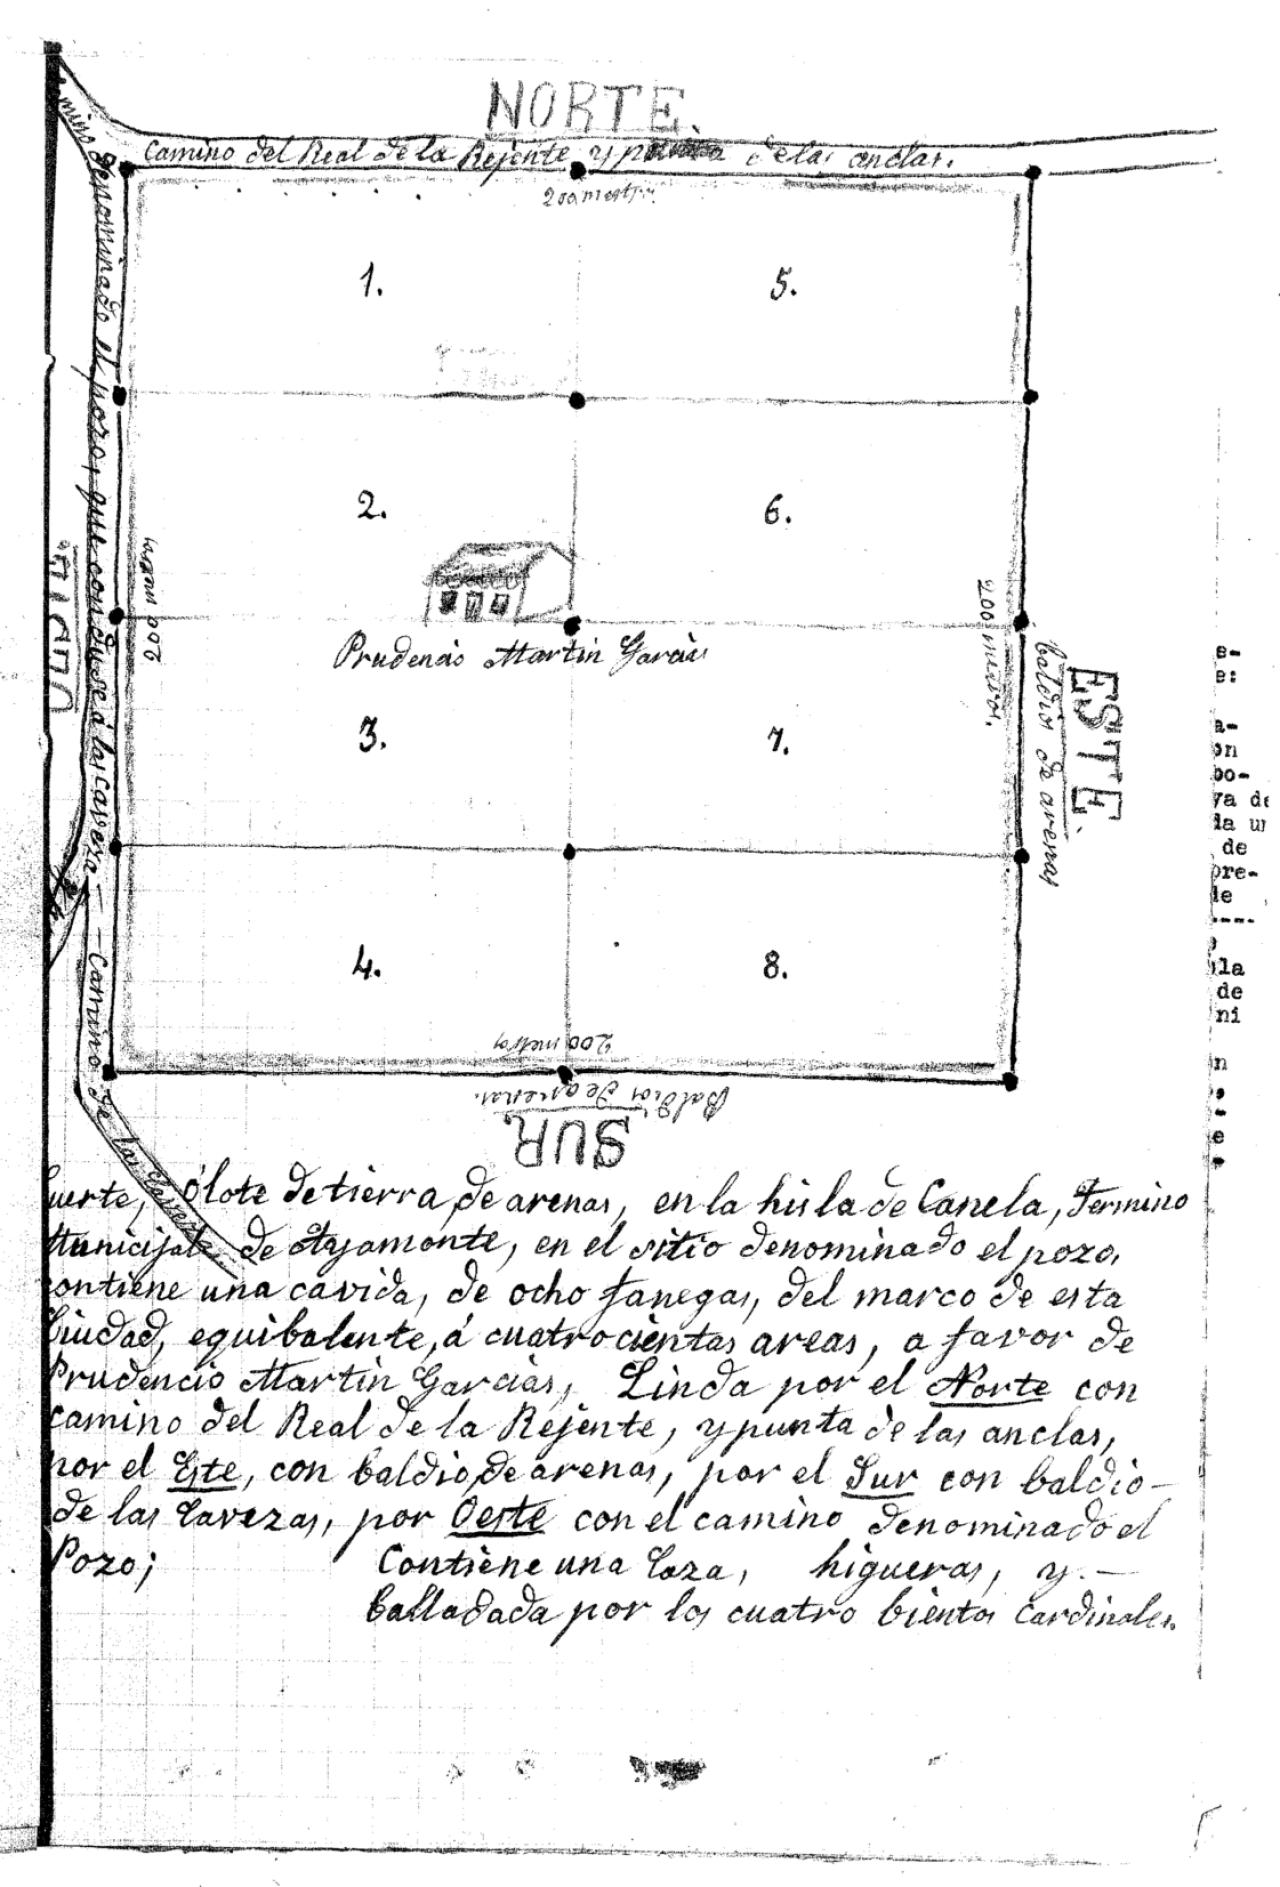 NORTE.
Camino del Real de la Rejente y punta de las anclas.
200 metros
1.
5.
2.
6.
200 metros
Prudencio Martin Garcias
200 metros.
ESTE.
baldios de arenas
3.
7.
4.
8.
Camino denominado el pozo, que conduse á las cavezas — Camino de las Cavezas
200 metros
Baldios de arenas.
SUR.
uerte, ó lote de tierra, de arenas, en la hisla de Canela, Termino
Municipal de Ayamonte, en el sitio denominado el pozo,
contiene una cavida, de ocho fanegas, del marco de esta
Ciudad, equibalente, á cuatrocientas areas, a favor de
Prudencio Martin Garcias, Linda por el Norte con
camino del Real de la Rejente, y punta de las anclas,
por el Este, con baldio, de arenas, por el Sur con baldio-
de las Cavezas, por Oeste con el camino denominado el
Pozo; Contiene una Coza, higueras, y.—
balladada por los cuatro bientos Cardinales.
e-
e:
a-
on
bo-
ya de
la un
de
pre-
le
----
la
de
ni
n
e